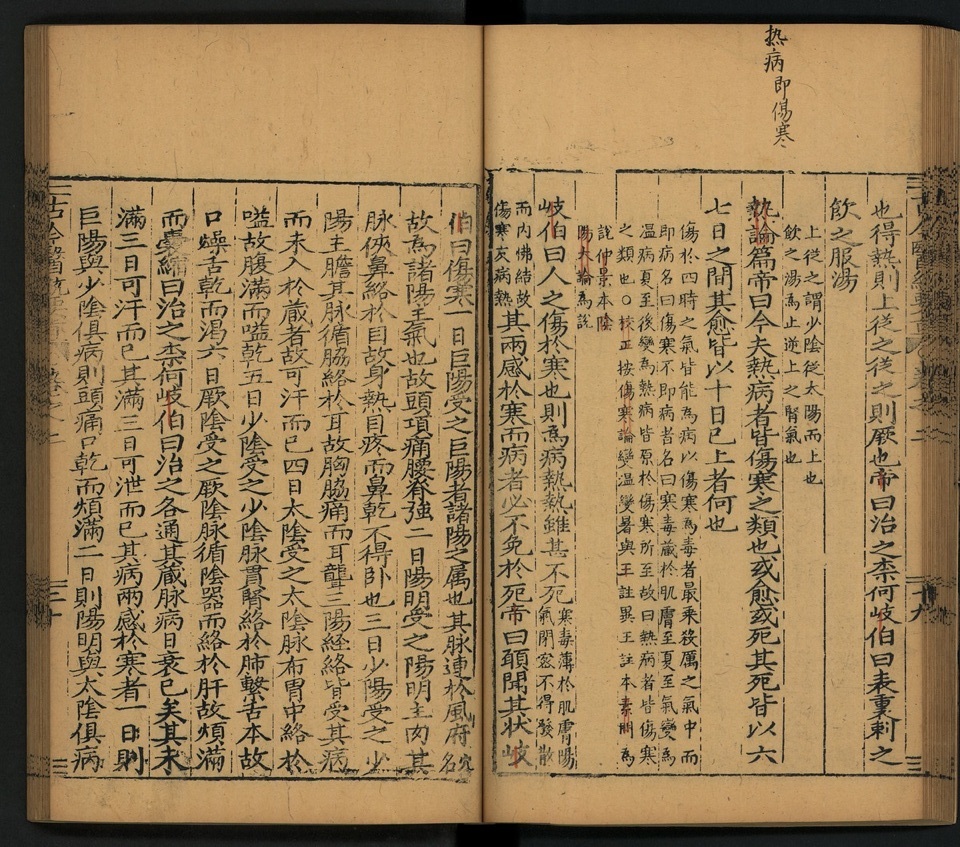 热病即傷寒
也得熱則上從之從之則厥也帝曰治之柰何岐伯曰表裏刺之
飲之服湯
上從之謂少陰從太陽而上也
飲之湯為止逆上之腎氣也
熱論篇帝曰今夫熱病者皆傷寒之類也或愈或死其死皆以六
七日之間其愈皆以十日已上者何也
傷於四時之氣皆能為病以傷寒為毒者最乘殺厲之氣中而
即病名曰傷寒不即病者名曰寒毒藏於肌膚至夏至氣變為
温病夏至後變為熱病皆原於傷寒所至故曰熱病者皆傷寒
之類也○校正按傷寒論變温變暑與王註異王註本素問為
說仲景本陰
陽大論為說
岐伯曰人之傷於寒也則為病熱熱雖甚不死
寒毒薄於肌膚陽
氣閉窓不得發散
而内佛結故
傷寒友病熱
其兩感於寒而病者必不免於死帝曰頭聞其状岐
伯曰傷寒一日巨陽受之巨陽者諸陽之属也其脉連於風府
穴
名
故為諸陽主氣也故頭項痛腰脊強二日陽明受之陽明主肉其
脉俠鼻絡於目故身熱目疼而鼻乾不得卧也三日少陽受之少
陽主膽其脉循脇絡於耳故胸脇痛而耳聾三陽經絡皆受其病
而未入於藏者故可汗而已四日太陰受之太陰脉布胃中絡於
嗌故腹滿而嗌乾五日少陰受之少陰脉貫腎絡於肺繫舌本故
口燥舌乾而渴六日厥陰受之厥陰脉循陰器而絡於肝故煩滿
而囊縮曰治之柰何岐伯曰治之各通其藏脉病日衰已矣其未
滿三日可汗而已其滿三日可泄而已其病兩感於寒者一日則
巨陽與少陰俱病則頭痛口乾而煩滿二日則陽明與太陰俱病